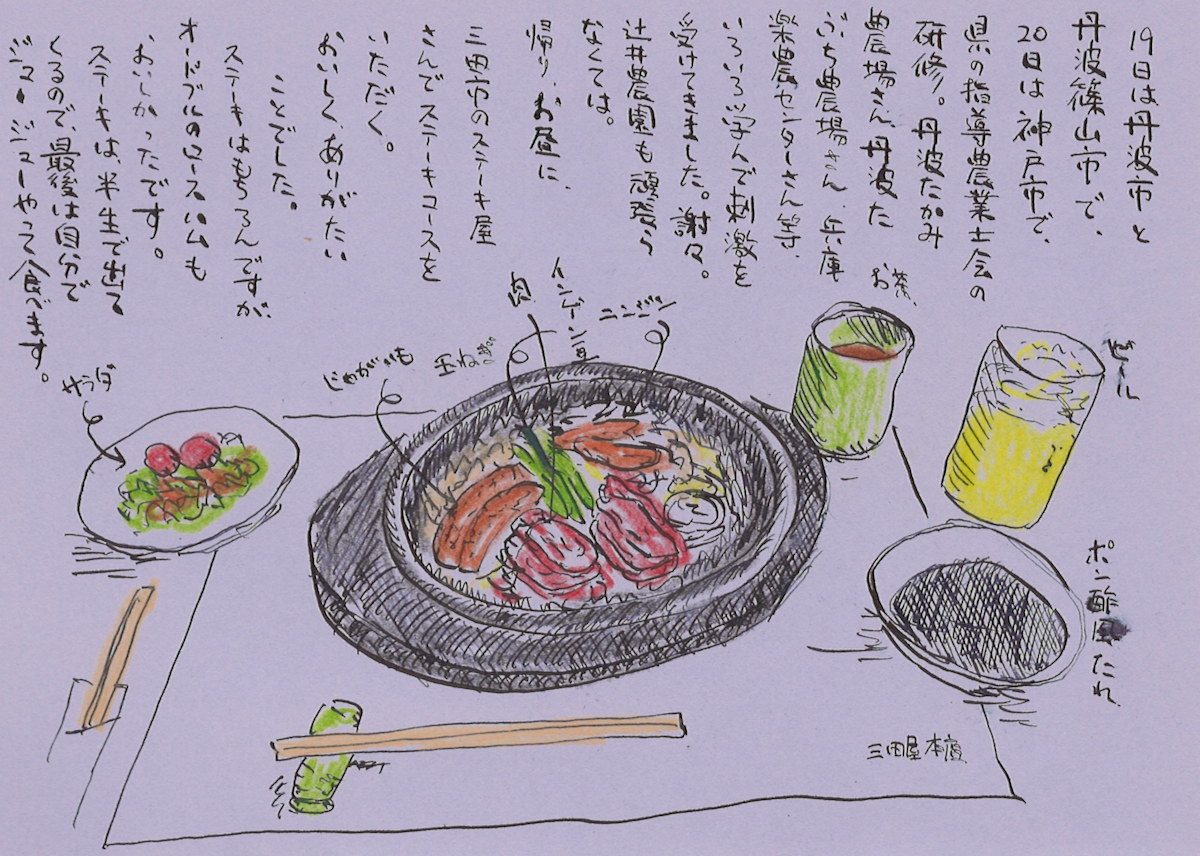 19日は丹波市と
丹波篠山市で、
20日は神戸市で、
県の指導農業士会の
研修。丹波たかみ
農場さん、丹波た
ぶち農場さん、兵庫
楽農センターさん等、
いろいろ学んで刺激を
受けてきました。謝々。
辻井農園も頑張ら
なくては。
帰り、お昼に、
三田市のステーキ屋
さんでステーキコースを
いただく。
おいしく、ありがたい
ことでした。
ステーキはもちろんですが、
オードブルのロースハムも
おいしかったです。
ステーキは、半生で出て
くるので、最後は自分で
ジュージューやって食べます。
お茶
ビール
ニンジン
インゲン豆
肉
玉ねぎ
じゃがいも
サラダ
ポン酢風たれ
三田屋本店